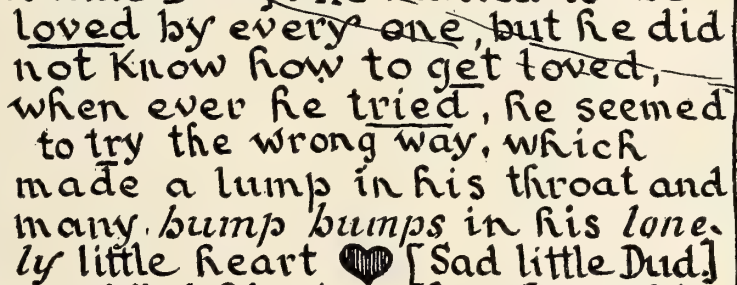 loved by every one, but he did
not know how to get loved,
when ever he tried, he seemed
to try the wrong way, which
made a lump in his throat and
many bump bumps in his lone-
ly little heart ♥ [Sad little Dud.]